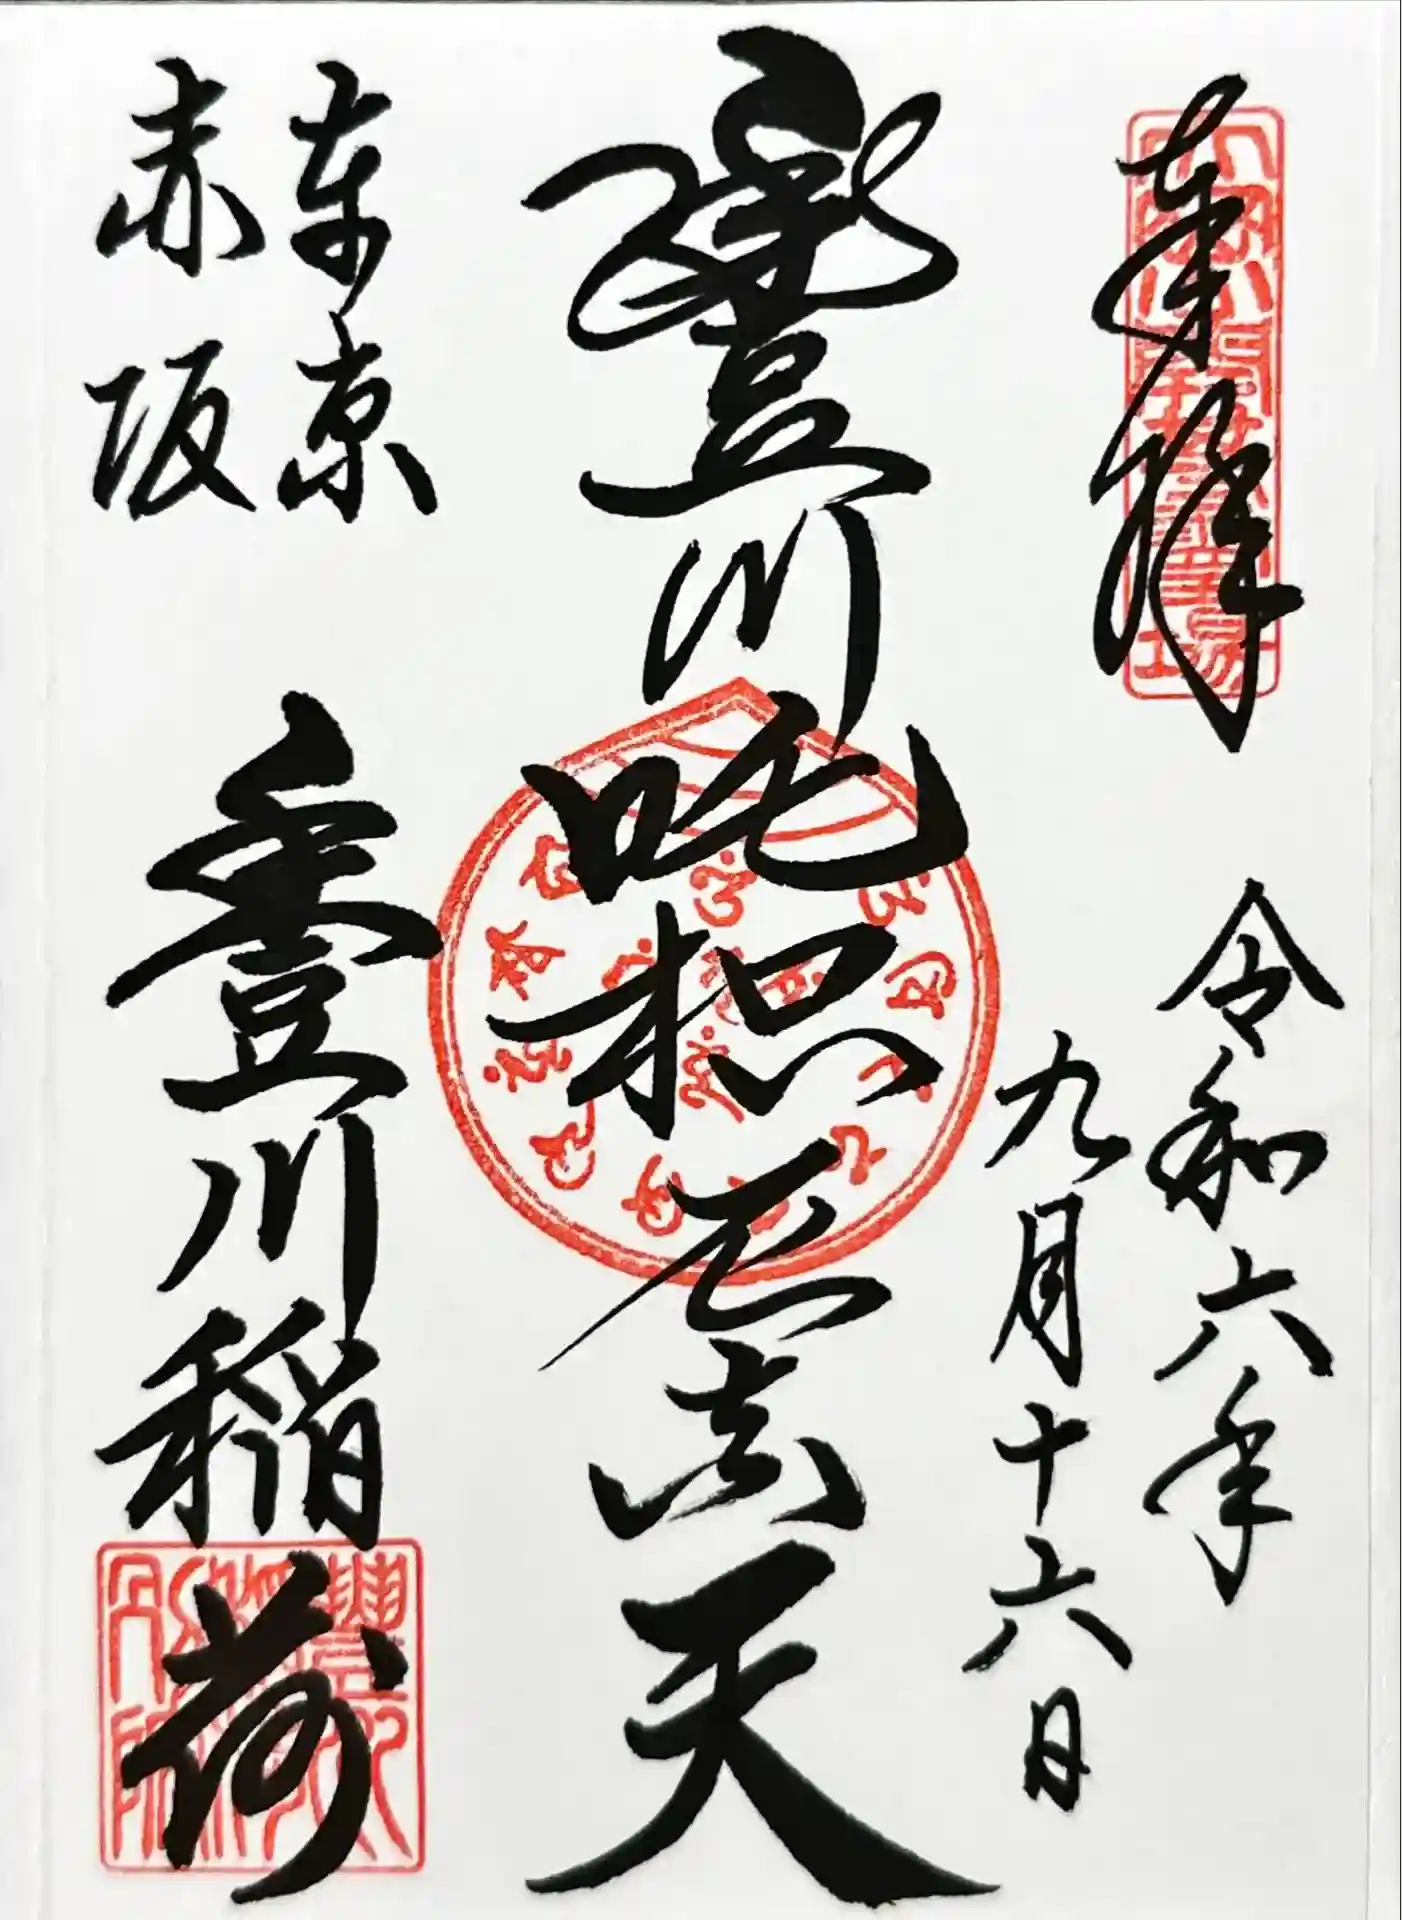 奉拝
令和六年
九月十六日
豊川吒枳尼真天
東京
赤坂
豊川稲荷